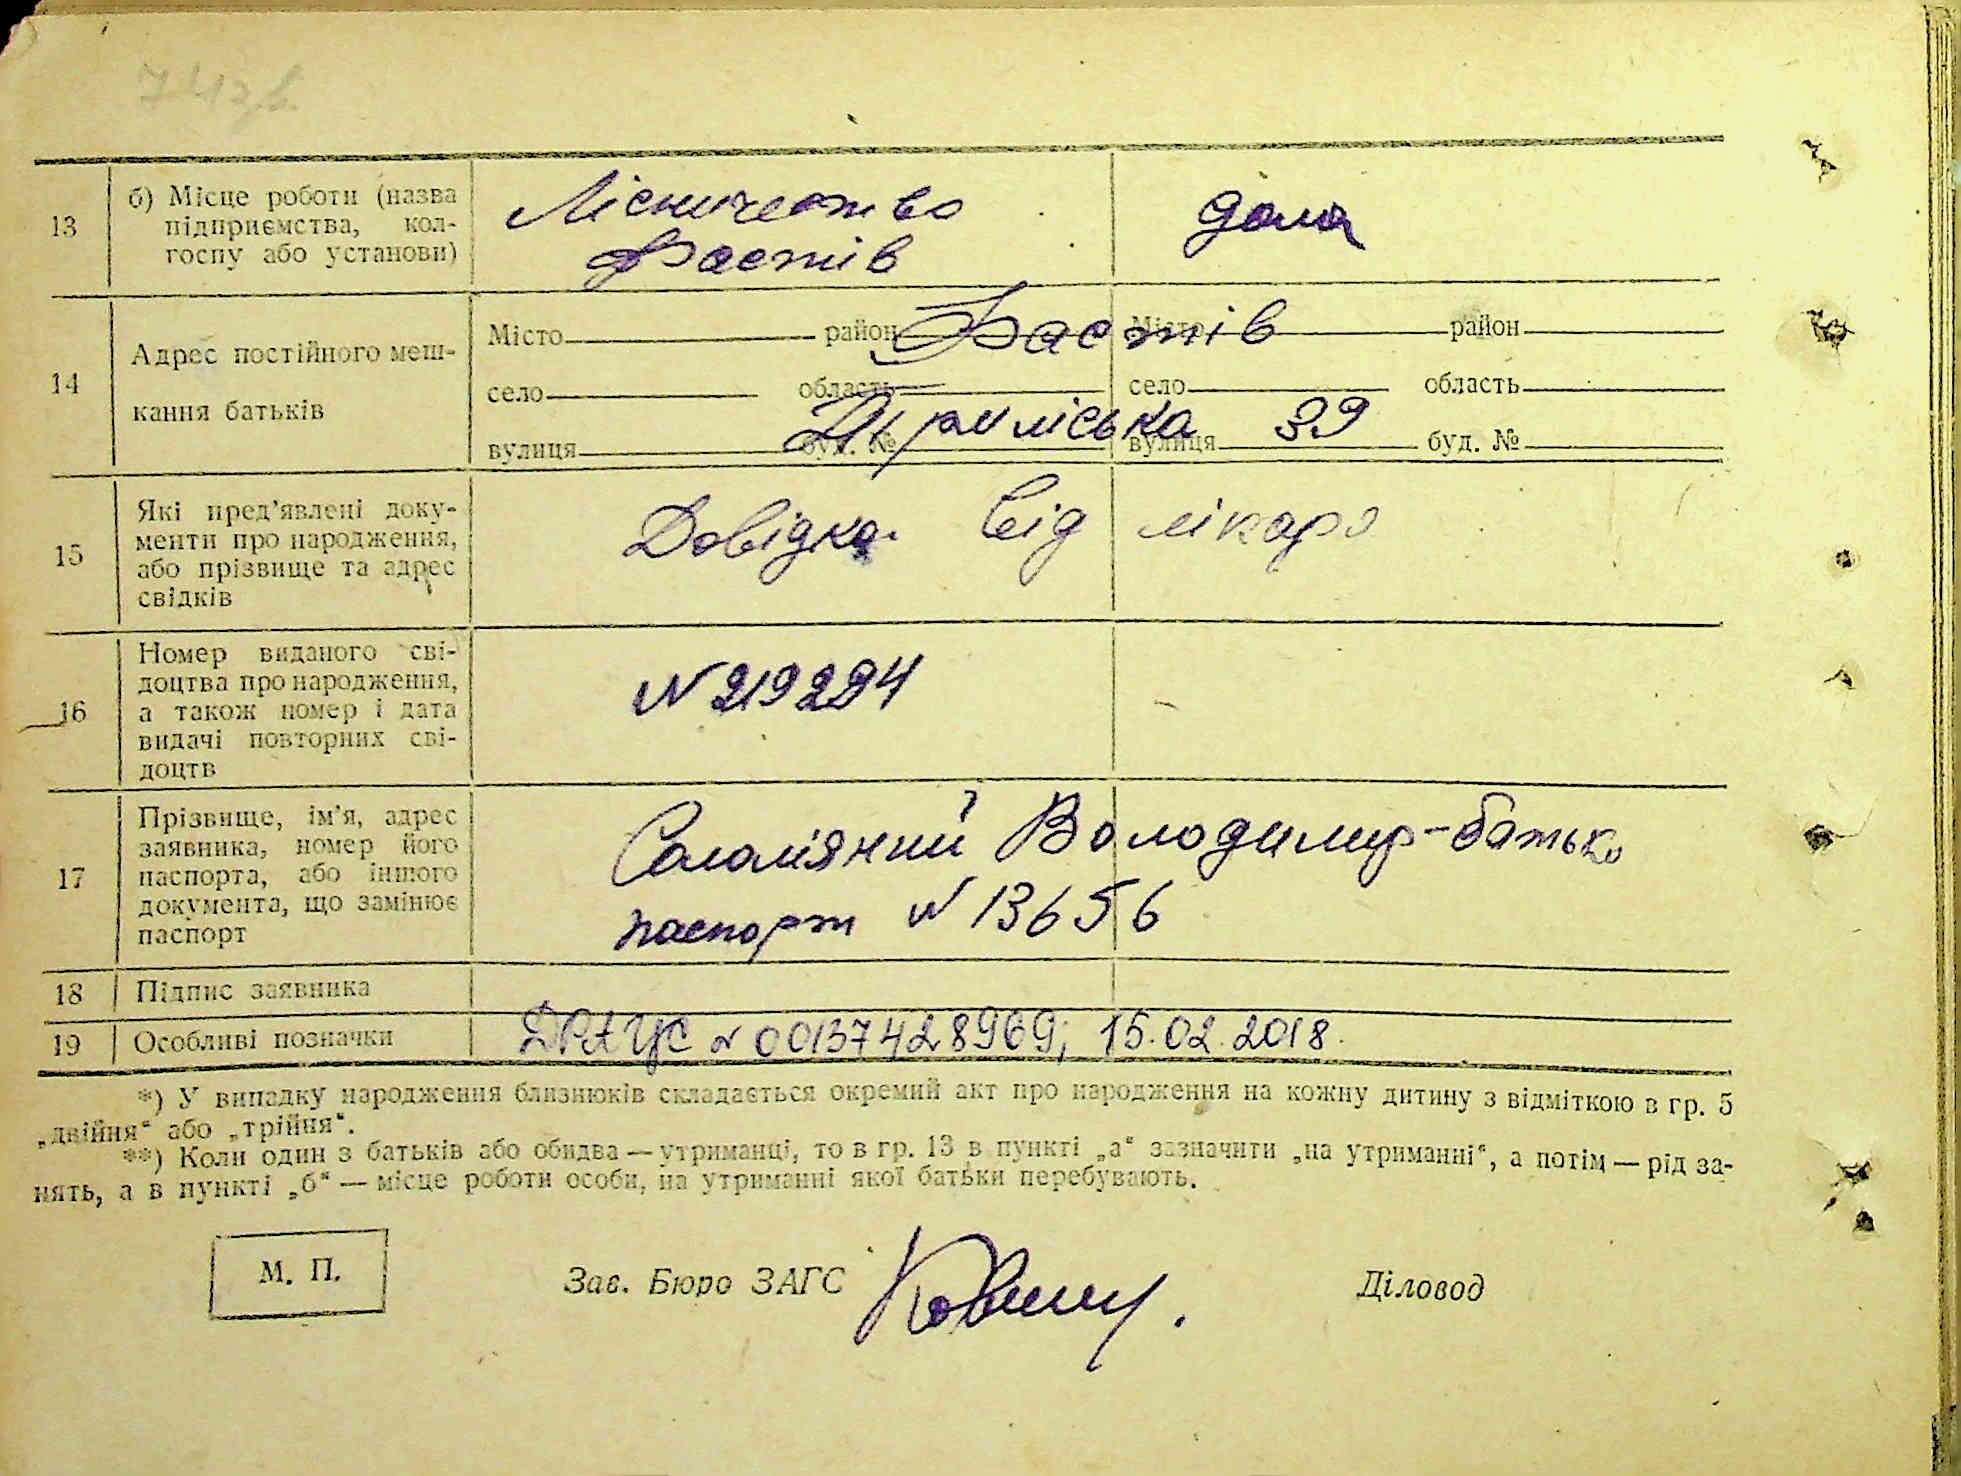 13
б) Місце роботи (назва
підприємства, кол-
госпу або установи)
Лісничество
Фастів
дома
14
Адрес постійного меш-
кання батьків
Місто район Місто район
Фастів
село область село область
вулиця буд. № вулиця буд. №
39
15
Які пред'явлені доку-
менти про народження,
або прізвище та адрес
свідків
Довідка від лікаря
16
Номер виданого сві-
доцтва про народження,
а також номер і дата
видачі повторних сві-
доцтв
N 219294
17
Прізвище, ім'я, адрес
заявника, номер його
паспорта, або іншого
документа, що замінює
паспорт
Солом'яний Володимир - батько
паспорт N 13656
18
Підпис заявника
19
Особливі позначки
ДРАЦС N 00137428969; 15.02.2018.
*) У випадку народження близнюків складається окремий акт про народження на кожну дитину з відміткою в гр. 5
„двійня“ або „трійня“.
**) Коли один з батьків або обидва — утриманці, то в гр. 13 в пункті „а“ зазначити „на утриманні“, а потім — рід за-
нять, а в пункті „б“ — місце роботи особи, на утриманні якої батьки перебувають.
М. П.
Зав. Бюро ЗАГС
Діловод